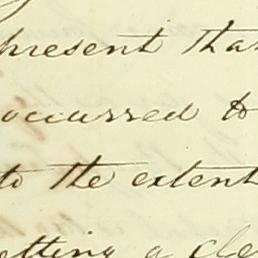 present that
occurred to
to the extent
etting a cle